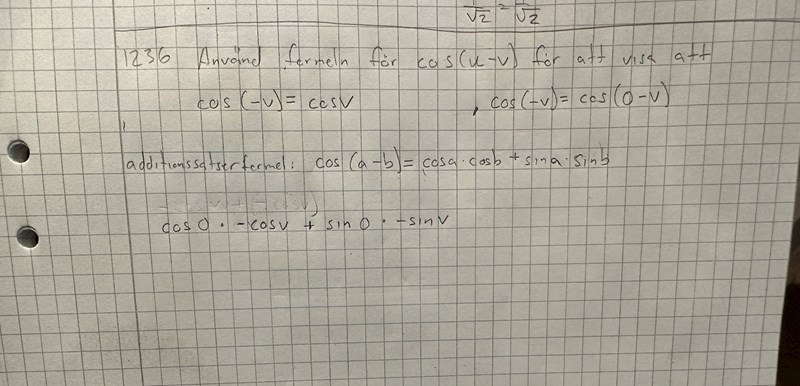 1/√2 = 1/√2
1236 Använd formeln för cos(u-v) för att visa att
cos(-v) = cosv , cos(-v) = cos(0-v)
additionssatserformel: cos(a-b) = cosa·cosb + sina·sinb
cos0 · -cosv + sin0 · -sinv